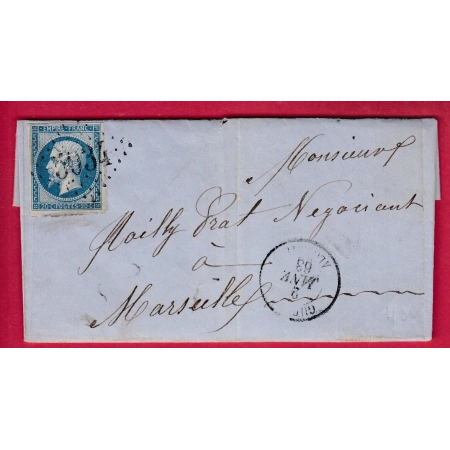 EMPIRE FRANC
20 C POSTES 20 C
Monsieur
Noilly Prat Negociant
à
Marseille
2
JANV.
63